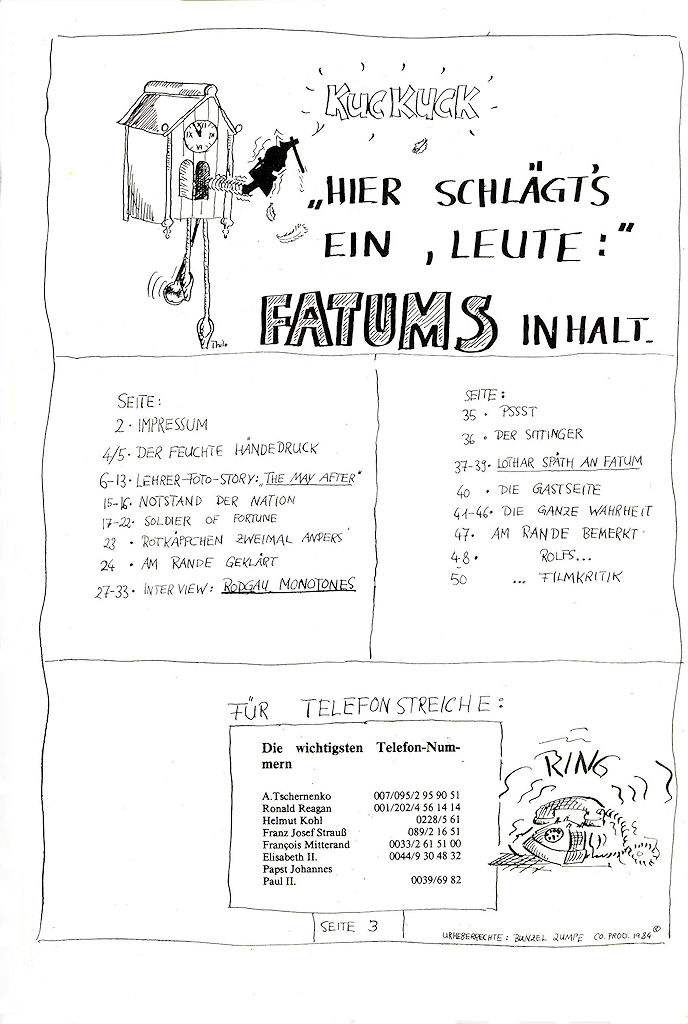 KUCKUCK
„HIER SCHLÄGT'S
EIN , LEUTE :“
FATUMS INHALT.
Thilo
SEITE:
2. IMPRESSUM
4/5. DER FEUCHTE HÄNDEDRUCK
6-13. LEHRER-FOTO-STORY: „THE MAY AFTER“
15-16. NOTSTAND DER NATION
17-22. SOLDIER OF FORTUNE
23 . ROTKÄPPCHEN ZWEIMAL ANDERS
24 . AM RANDE GEKLÄRT
27-33. INTERVIEW: RODGAU MONOTONES
SEITE:
35 . PSSST
36 . DER SITTINGER
37-39. LOTHAR SPÄTH AN FATUM
40 . DIE GASTSEITE
41-46. DIE GANZE WAHRHEIT
47. AM RANDE BEMERKT.
48. ROLFS...
50 ... FILMKRITIK
FÜR TELEFONSTREICHE:
Die wichtigsten Telefon-Num-
mern
A.Tschernenko 007/095/2 95 90 51
Ronald Reagan 001/202/4 56 14 14
Helmut Kohl 0228/5 61
Franz Josef Strauß 089/2 16 51
François Mitterand 0033/2 61 51 00
Elisabeth II. 0044/9 30 48 32
Papst Johannes
Paul II. 0039/69 82
RING
SEITE 3
URHEBERRECHTE: BUNZEL ZUMPE CO. PROD. 1984 ©